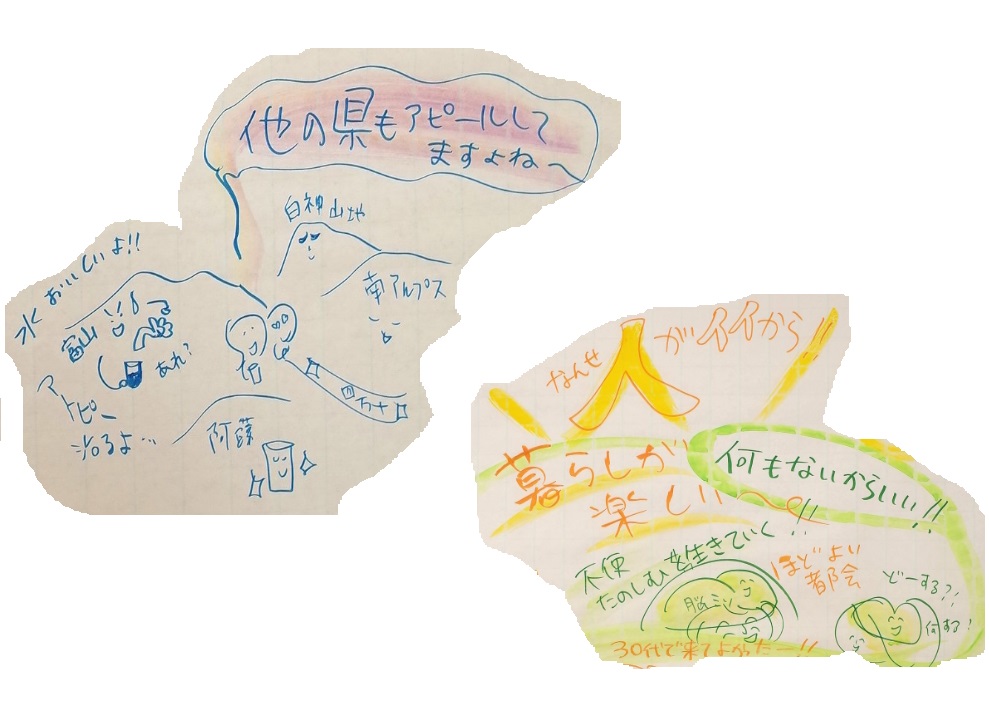 他の県もアピールして
ますよね〜
白神山地
水おいしいよ!!
南アルプス
富山
あれ?
アトピー
治るよ…
四万十
阿蘇
なんせ
人がイイから
暮らしが
楽しい〜
何もないからいい!!
不便
たのしむを生きていく!!
ほどよい
都会
どーする?!
何する!
脳ミソ
30代で来てよかったー!!